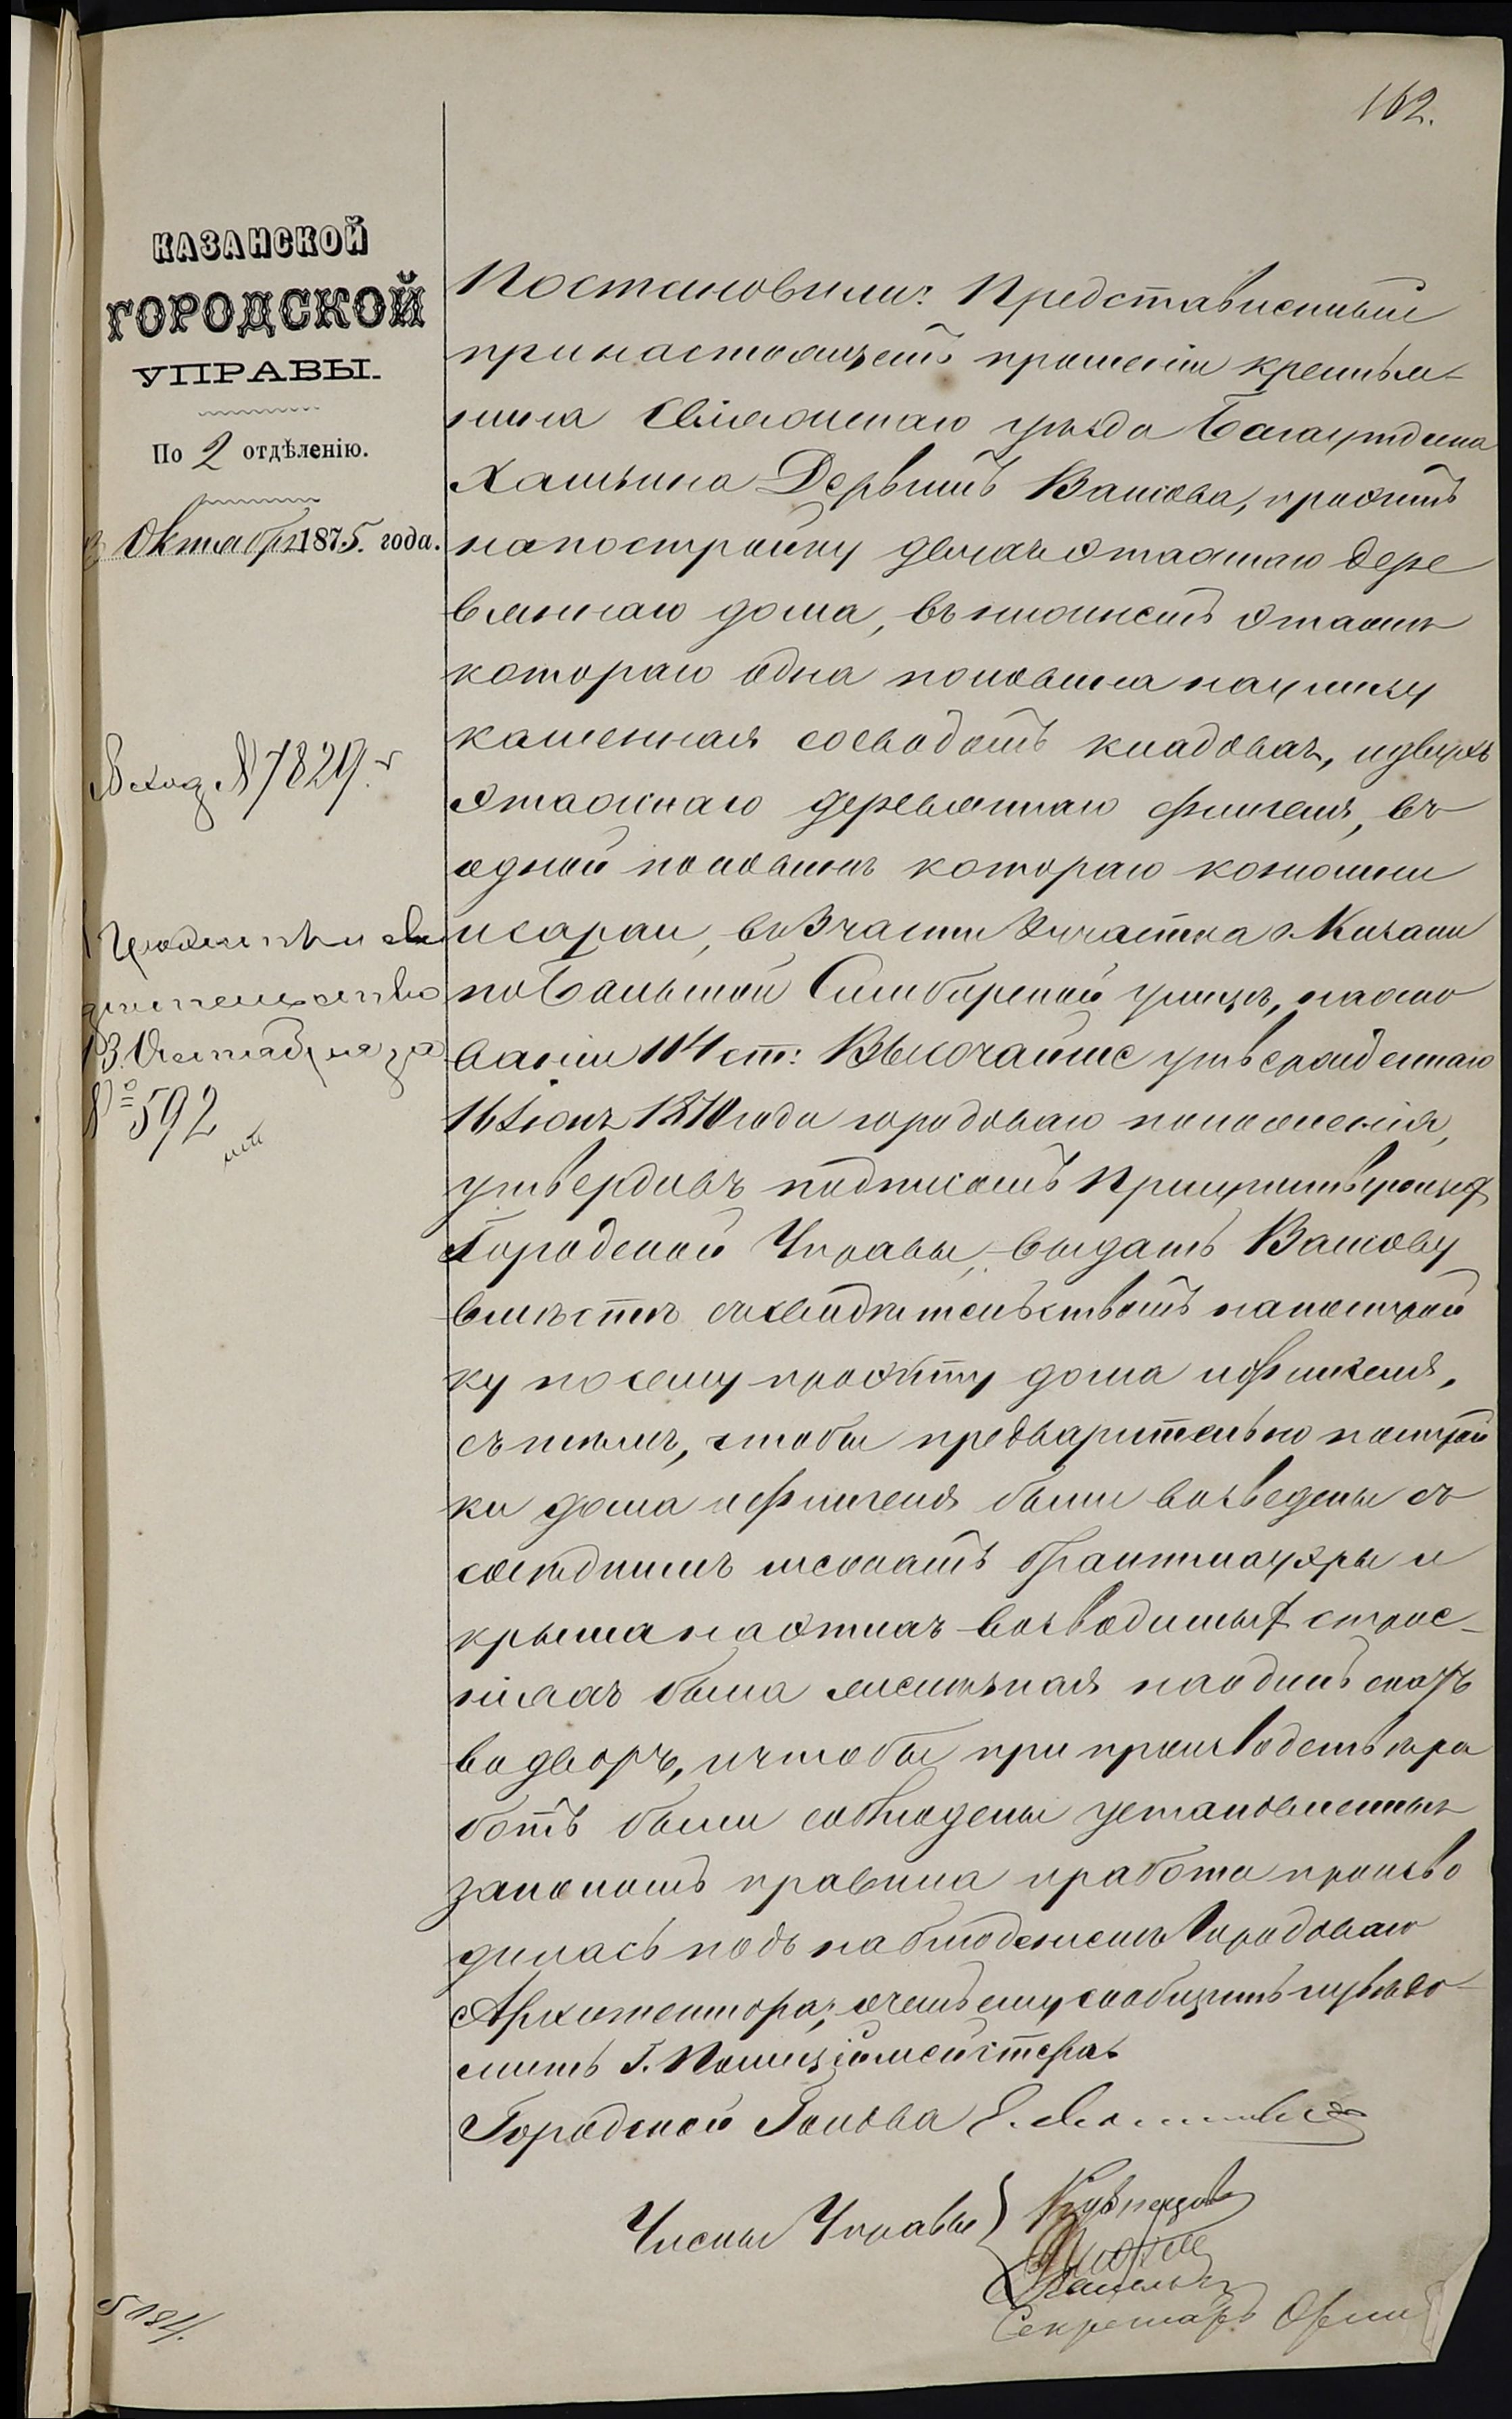 162.
КАЗАНСКОЙ
ГОРОДСКОЙ
УПРАВЫ.
По 2 отдѣленію.
Октября 1875. года.
Вход. № 7829.
13 Октября за
№ 592
Постановили: Представленный
при настоящемъ прошеніи крестья-
нина Свіяжскаго уѣзда
Дервишъ Вашова, проэктъ
на постройку двухъ этажнаго дере
вяннаго дома, въ нижнемъ этажѣ
котораго одна половина на улицу
каменная со сводомъ кладовая, и двухъ
этажнаго деревяннаго флигеля, въ
одной половинѣ котораго конюшни
и сараи, въ 3 части участка г. Казани
по Большой Симбирской улицѣ, на осно
ваніи 114 ст: Высочайше утвержденнаго
16 Іюня 1870 года городоваго положенія,
утвердивъ подписомъ Присутствующихъ
Городской Управы, выдать Вашову
вмѣстѣ съ свидѣтельствомъ на построй
ку по сему проэкту дома и флигеля,
съ тѣмъ, чтобы предварительно построй
ки дома и флигеля были возведены съ
сосѣднимъ мѣстамъ брантмауэры и
крыша на этихъ возводимыхъ строе-
ніяхъ была желѣзная на одинъ скатъ
во дворъ, и чтобы при производствѣ ра
ботъ были соблюдены установленныя
закономъ правила и работа произво
дилась подъ наблюденіемъ Городоваго
Архитектора; о чемъ ему сообщить и увѣдо-
мить Г. Полиціймейстера
Городской Голова Е.
Члены Управы
Секретарь
5184.